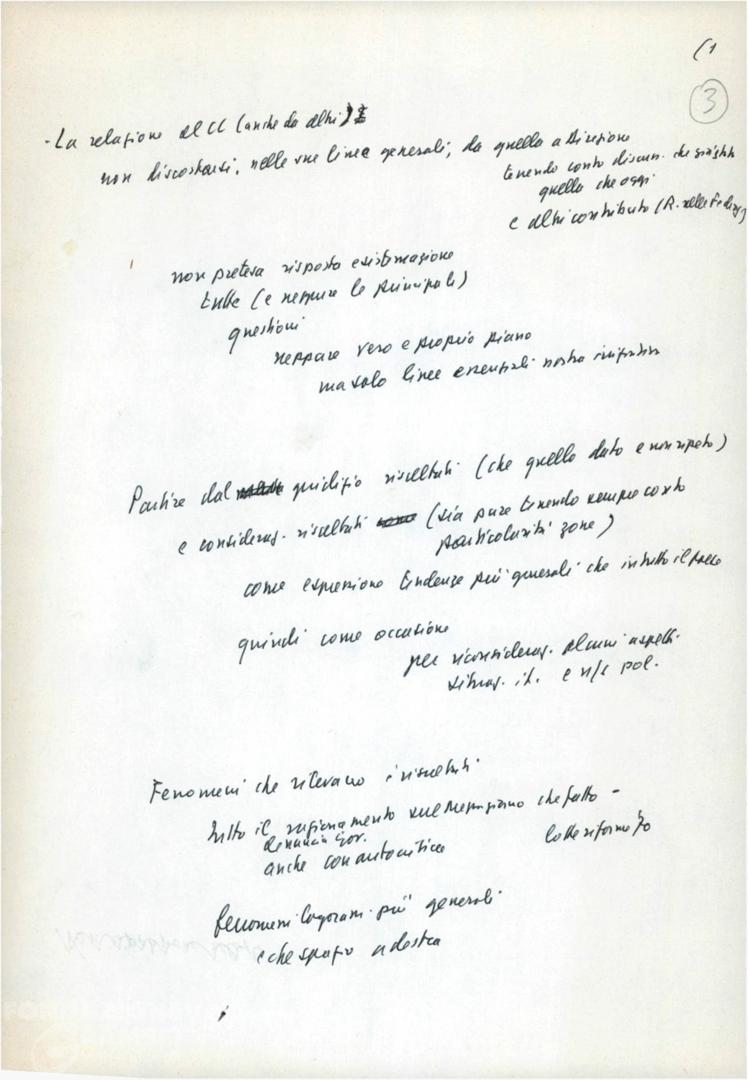 (1
3
- La relazione al CC (anche da altri)
non discostarsi, nelle sue linee generali, da quella a Direzione
tenendo conto discuss. che già fatta
quella che oggi
e altri contributo (R. nelle Federaz)
non pretesa risposta e sistemazione
tutte (e neppure le principali)
questioni
neppure vero e proprio piano
ma solo linee essenziali nostra iniziativa
Partire dal giudizio risultati (che quello dato e non ripeto)
e consideraz. risultati (sia pure tenendo sempre conto
particolarità zone)
come espressione tendenze più generali che in tutto il paese
quindi come occasione
per riconsideraz. alcuni aspetti
situaz. it. e n/s pol.
Fenomeni che rilevano i risultati
Tutto il ragionamento sul Mezzogiorno che fatto -
denuncia gov.
anche con autocritica
lotte riforme 70
fenomeni più generali
e che spazio a destra